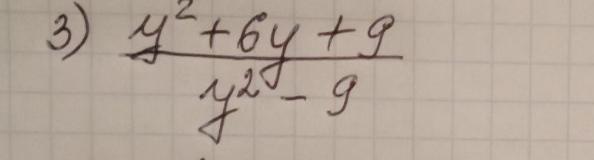 3) y² + 6y + 9
y² - 9